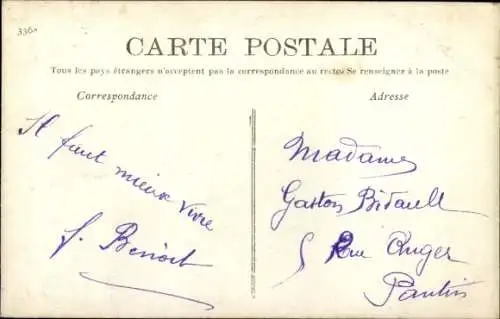 336
CARTE POSTALE
Tous les pays étrangers n'acceptent pas la correspondance au recto: Se renseigner à la poste
Correspondance
Il faut mieux vivre
J. Benoit
Adresse
Madame
Gaston Bidault
5 Rue Auger
Pantin